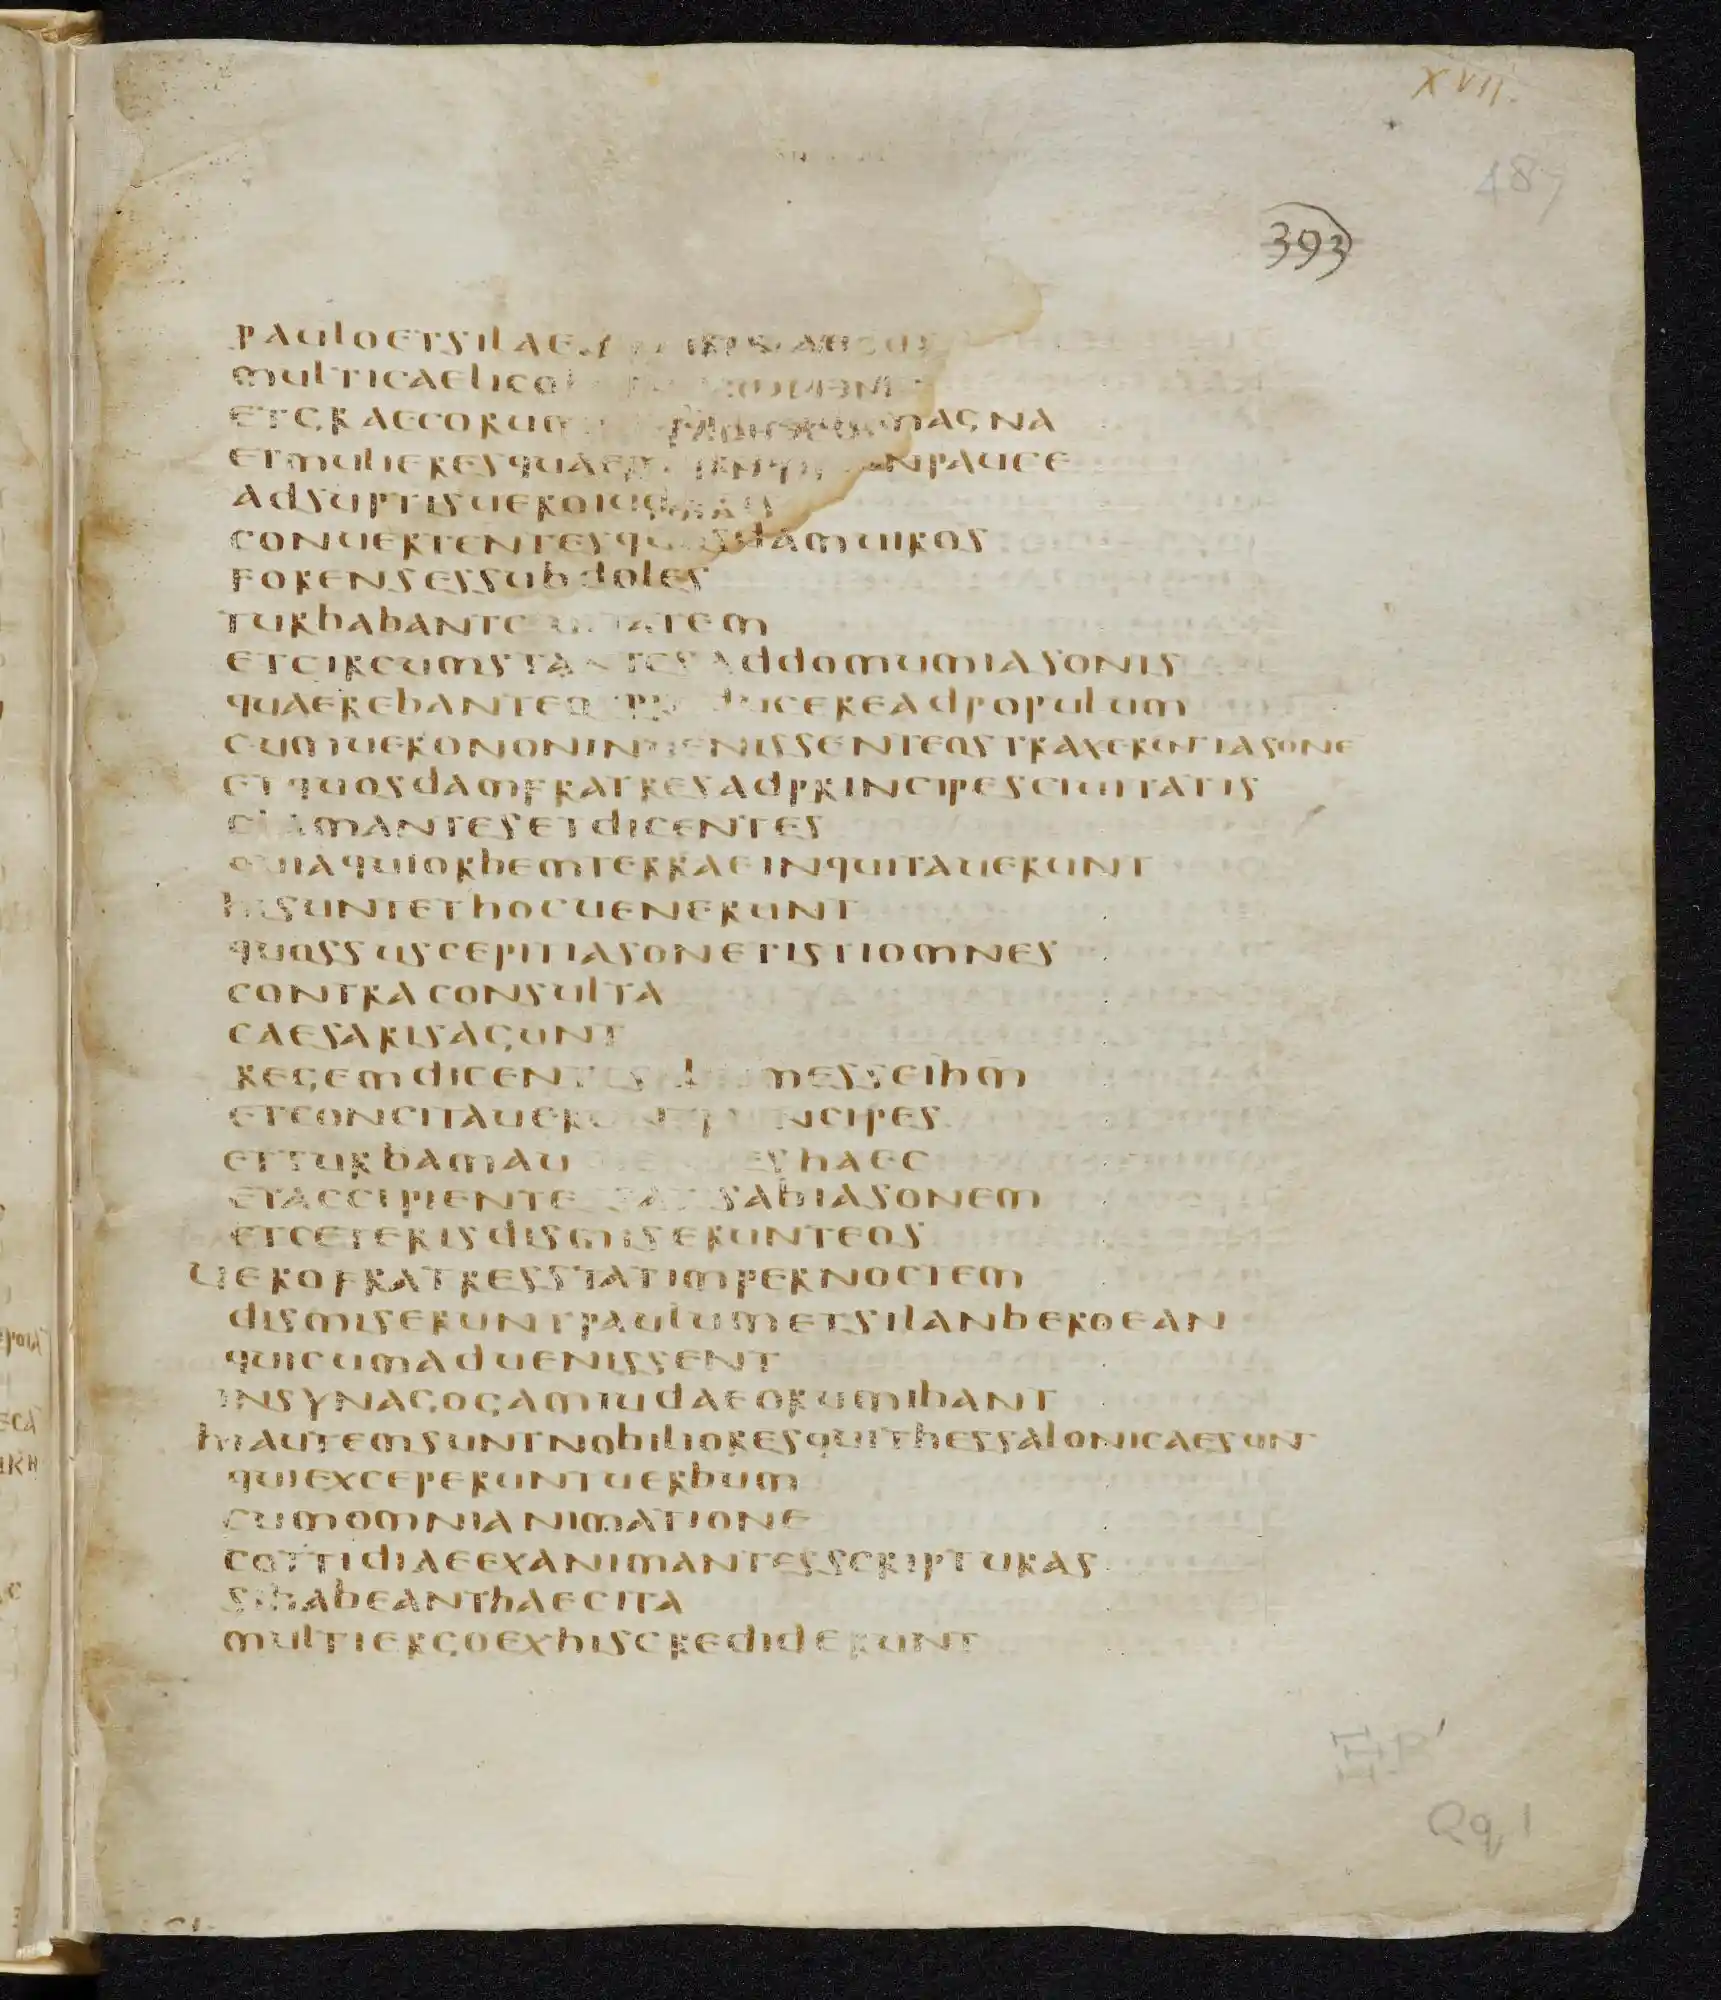 XVII.
487
393
PAULOETSILAE
MULTICAELICO
ETGRAECORUM MAGNA
ETMULIERESQUAE NPAUCE
ADSUPTISUEROIUD
CONUERTENTESQUOSDAMUIROS
FORENSESSUBDOLES
TURBABANTCIUITATEM
ETCIRCUMSTANTESADDOMUMIASONIS
QUAEREBANTEOSPRODUCEREADPOPULUM
CUMUERONONINUENISSENTEOSTRAXERUNTIASONE
ETQUOSDAMFRATRESADPRINCIPESCIUITATIS
CLAMANTESETDICENTES
QUIAQUIORBEMTERRAEINQUITAUERUNT
HISUNTETHOCUENERUNT
QUOSSUSCEPITIASONETISTIOMNES
CONTRACONSULTA
CAESARISAGUNT
REGEMDICENTES MESSEIHM
ETCONCITAUERUNTPRINCIPES
ETTURBAMAU ESHAEC
ETACCIPIENTESSATISABIASONEM
ETCETERISDISMISERUNTEOS
UEROFRATRESSTATIMPERNOCTEM
DISMISERUNTPAULUMETSILANBEROEAN
QUICUMADUENISSENT
INSYNAGOGAMIUDAEORUMIBANT
HIAUTEMSUNTNOBILIORESQUITHESSALONICAESUNT
QUIEXCEPERUNTUERBUM
CUMOMNIANIMATIONE
COTTIDIAEEXANIMANTESSCRIPTURAS
SIHABEANTHAECITA
MULTIERGOEXHISCREDIDERUNT
Qq 1